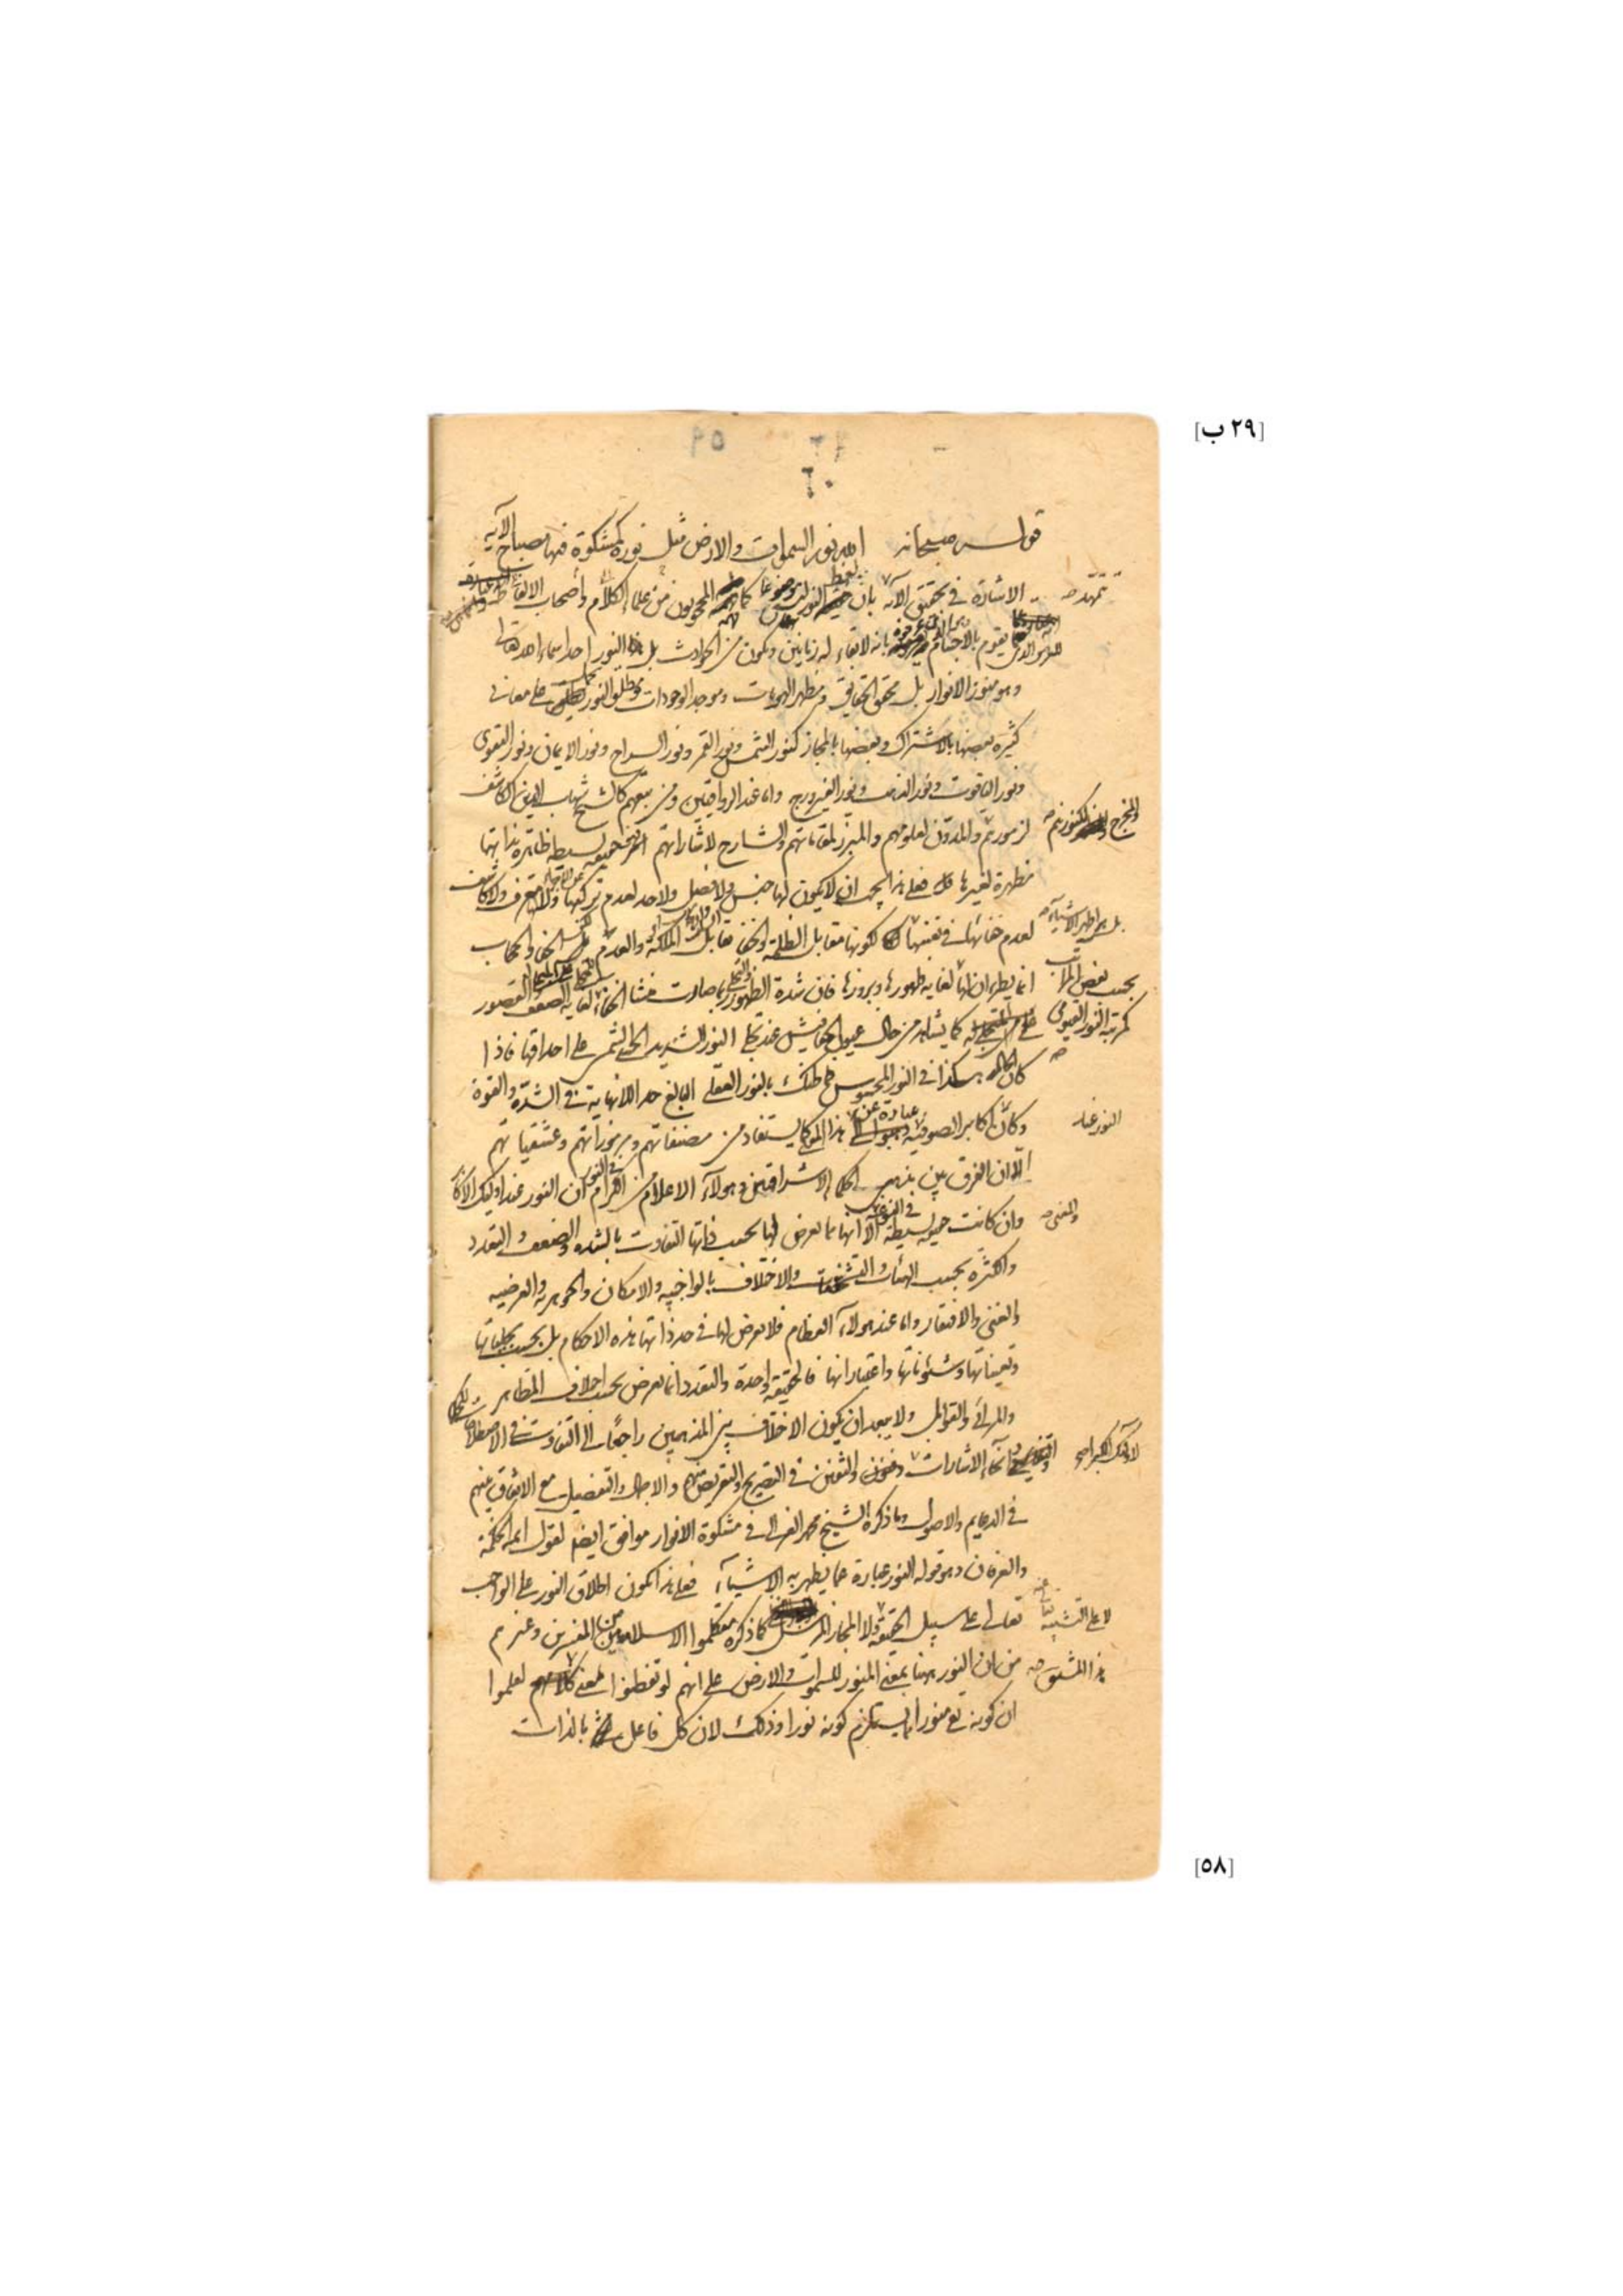 [٢٩ ب]
٥٩
٦٠
قوله سبحانه الله نور السموات والارض مثل نوره كمشكوة فيها مصباح الآيه
تمهّد
الاشارة في تحقيق الآية بان لفظ النور ليس موضوعا كما فهمه المحجوبون من علماء الكلام وأصحاب الالفاظ
الذي يقوم بالاجسام عرفوه بانه لا بقاء له زمانين ويكون من الحوادث بل النور احد اسماء الله تعالى
وهو منور الانوار بل محقق الحقايق ومظهر الهويات وموجد الوجودات ومطلق النور يحمل على معاني
كثيرة بعضها بالاشتراك وبعضها بالمجاز كنور الشمس ونور القمر ونور السراج ونور الايمان ونور التقوى
ونور الياقوت ونور الذهب ونور الفيروزج واما عند الرواقيين ومن تبعهم كالشيخ شهاب الدين الكاشف
والمخرج لكنوزهم
لرموزهم والمدون لعلومهم والمبرز لمقاماتهم والشارح لاشاراتهم انه حقيقة بسيطة ظاهرة بذاتها
مظهرة لغيرها فعلى هذا يجب ان لا يكون لها جنس ولا فصل ولا حد لعدم تركبها من الاجزاء ولا معرف ولا كاشف
بل هي اظهر الاشياء
لعدم خفائها في نفسها لكونها مقابل الظلمة والخفاء تقابل الملكة والعدم لكن الخفاء والحجاب
بحسب بعض المراتب
انما يطرءان لها لغاية ظهورها وبروزها فان شدة الظهور والتجلي ربما صارت منشا الخفاء لغاية الضعف القصور
كمرتبة النور القيومي
كما يشاهد من حال عيون الخفافيش عند تجلي النور الشديد الحسي الشمسي على احداقها فاذا
كان الحال هكذا في النور المحسوس فما ظنك بالنور العقلي البالغ حد اللانهاية في الشدة والقوة
النور عند
وكأن اكابر الصوفية عبارة عن هذا كما يستفاد من مصنفاتهم ومرموزاتهم وعشقياتهم
الّا ان الفرق بين مذهب الحكماء الاشراقيين وهولآء الاعلام الكرام في النور ان النور عند اوليك الأكابر
والغنى
وان كانت حقيقة بسيطة في النورية الا انها مما يعرض لها بحسب ذاتها التفاوت بالشدة والضعف والتعدد
والكثرة بحسب الهيئات والتشخصات والاختلاف بالواجبية والامكان والجوهرية والعرضية
والغنى والافتقار واما عند هولآء العظام فلا يعرض لها في حد ذاتها هذه الاحكام بل بحسب تجلياتها
وتعيناتها وشئوناتها واعتباراتها فالحقيقة واحدة والتعدد انما يعرض بحسب اختلاف المظاهر
والمرائي والقوابل ولا يبعد ان يكون الاختلاف بين المذهبين راجعا الى التفاوت في الاصطلاحات
لاولئك الكبراء
وانحآء الاشارات وفنون والتفنن في التصريح والتعريض والاجمال والتفصيل مع الاتفاق منهم
في الدعايم والاصول وما ذكره الشيخ محمد الغزالي في مشكوة الانوار موافق ايضا لقول ائمة الحكمة
والعرفان وهو قوله النور عبارة عما يظهر به الاشياء فعلى هذا يكون اطلاق النور على الواجب
لا على التشبيه
تعالى على سبيل الحقيقة ولا المجاز المرسل كما ذكره متكلموا الاسلاميين من المفسرين وغيرهم
هذا المشتق
من ان النور ههنا بمعنى المنور للسموات والارض على انهم لو تفطنوا لمعنى لعلموا
ان كونه تع منورا يستلزم كونه نورا وذلك لان كل فاعل بالذات
[٥٨]